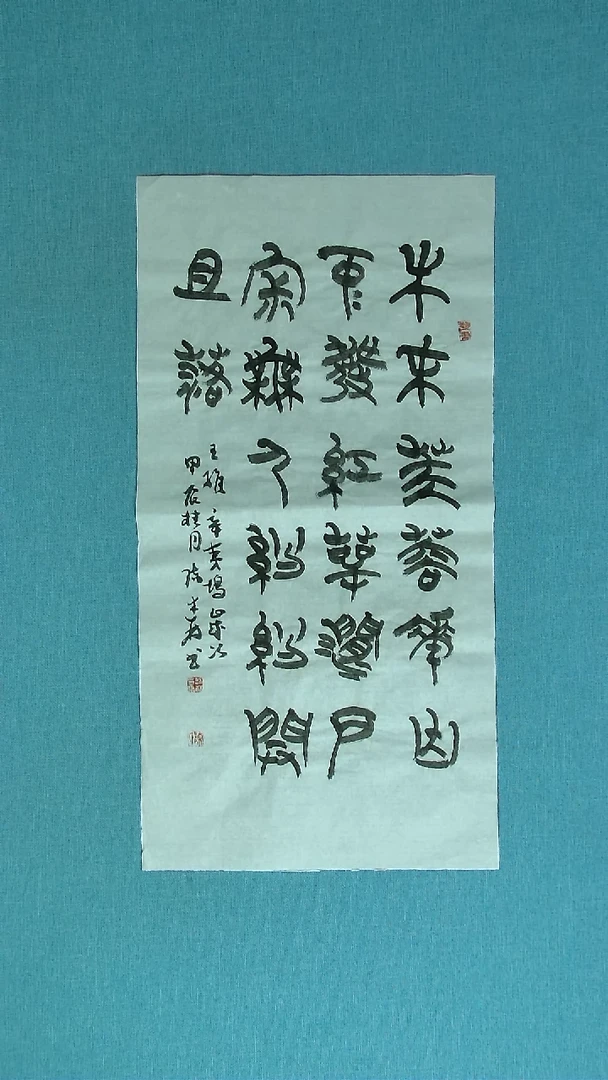 木末芙蓉華山
中發紅萼澗戶
寂無人紛紛開
且落
王維辛夷塢
甲辰桂月 書